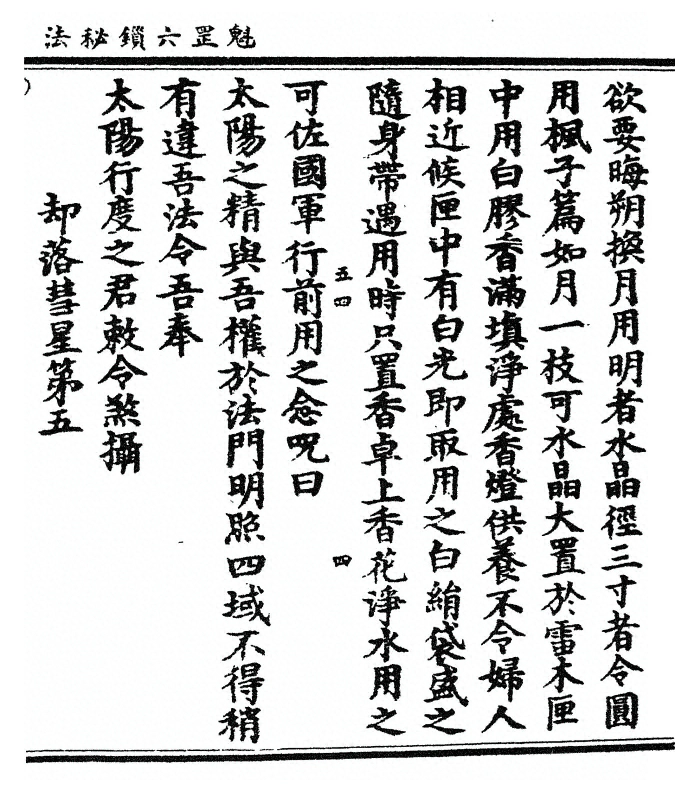 魁罡六鎖秘法
欲要晦朔換月用明者水晶徑三寸者令圓
用楓子篇如月一枝可水晶大置於雷木匣
中用白膠香滿填淨處香燈供養不令婦人
相近候匣中有白光即取用之白絹袋盛之
隨身帶遇用時只置香卓上香花淨水用之
五四
四
可佐國軍行前用之念呪曰
太陽之精與吾權於法門明照四域不得稍
有違吾法令吾奉
太陽行度之君敕令煞攝
却落彗星第五